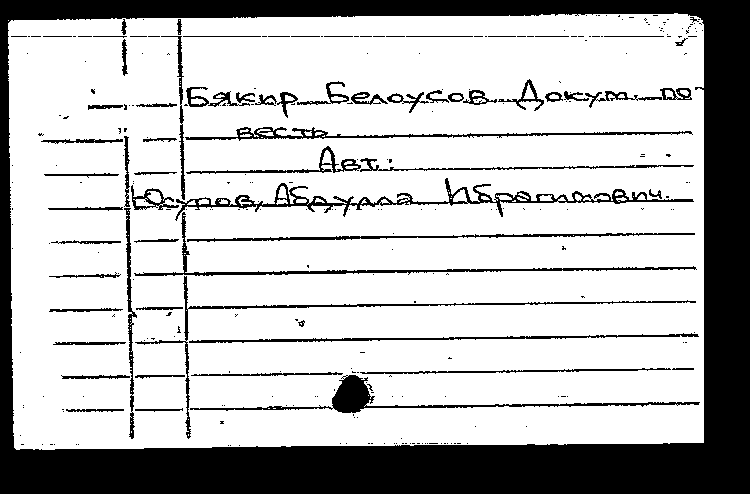 Бякир Белоусов Докум. по-
весть.
Авт:
Юсупов, Абдулла Ибрагимович.